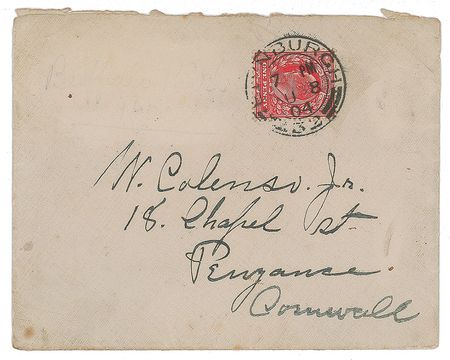 EDINBURGH
7 PM
8
04
32
W. Colenso. Jr.
18. Chapel St.
Penzance
Cornwall